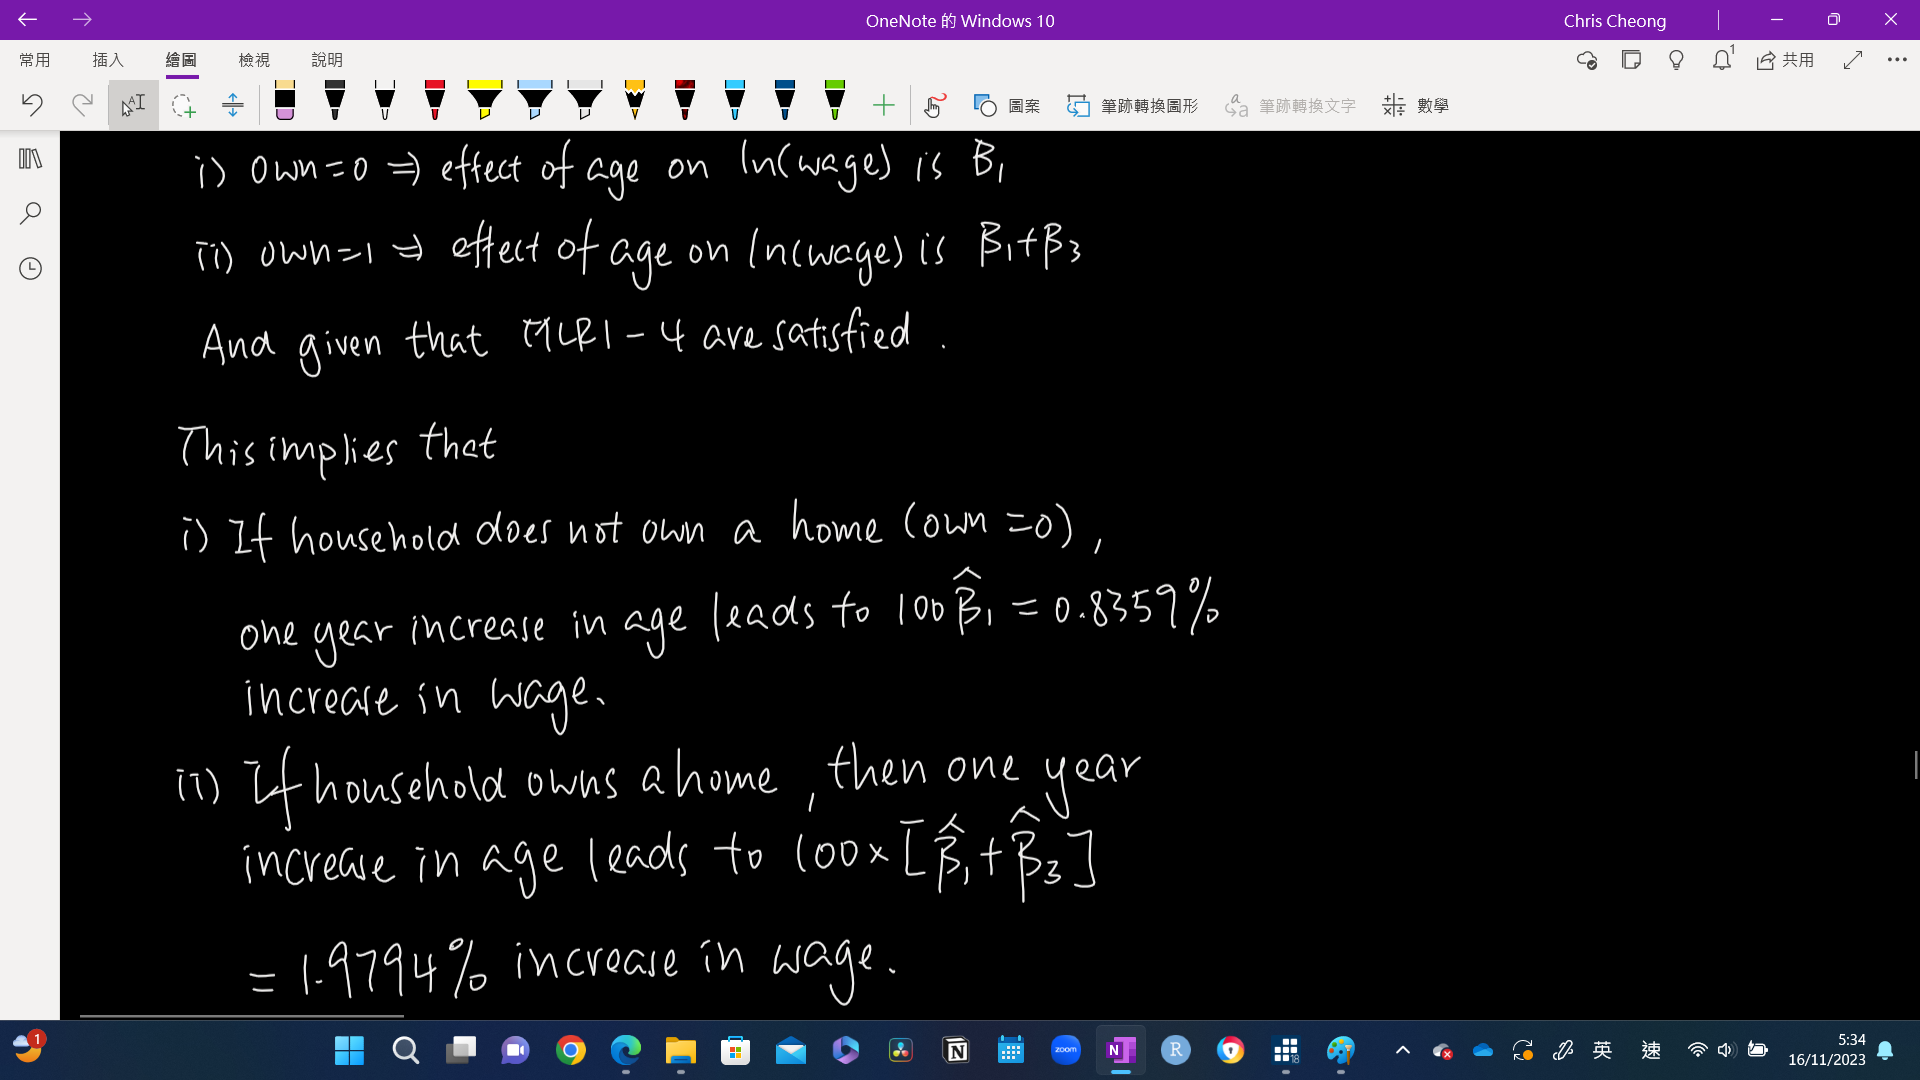 OneNote 的 Windows 10
Chris Cheong
常用 插入 繪圖 檢視 說明
1
共用
圖案 筆跡轉換圖形 筆跡轉換文字 數學
i) own=0 ⇒ effect of age on ln(wage) is β₁
ii) own=1 ⇒ effect of age on ln(wage) is β₁+β₃
And given that MLR1-4 are satisfied.
This implies that
i) If household does not own a home (own=0),
one year increase in age leads to 100β̂₁ = 0.8359%
increase in wage.
ii) If household owns a home, then one year
increase in age leads to 100×[β̂₁+β̂₃]
= 1.9794% increase in wage.
1
zoom
N
R
18
英
速
5:34
16/11/2023